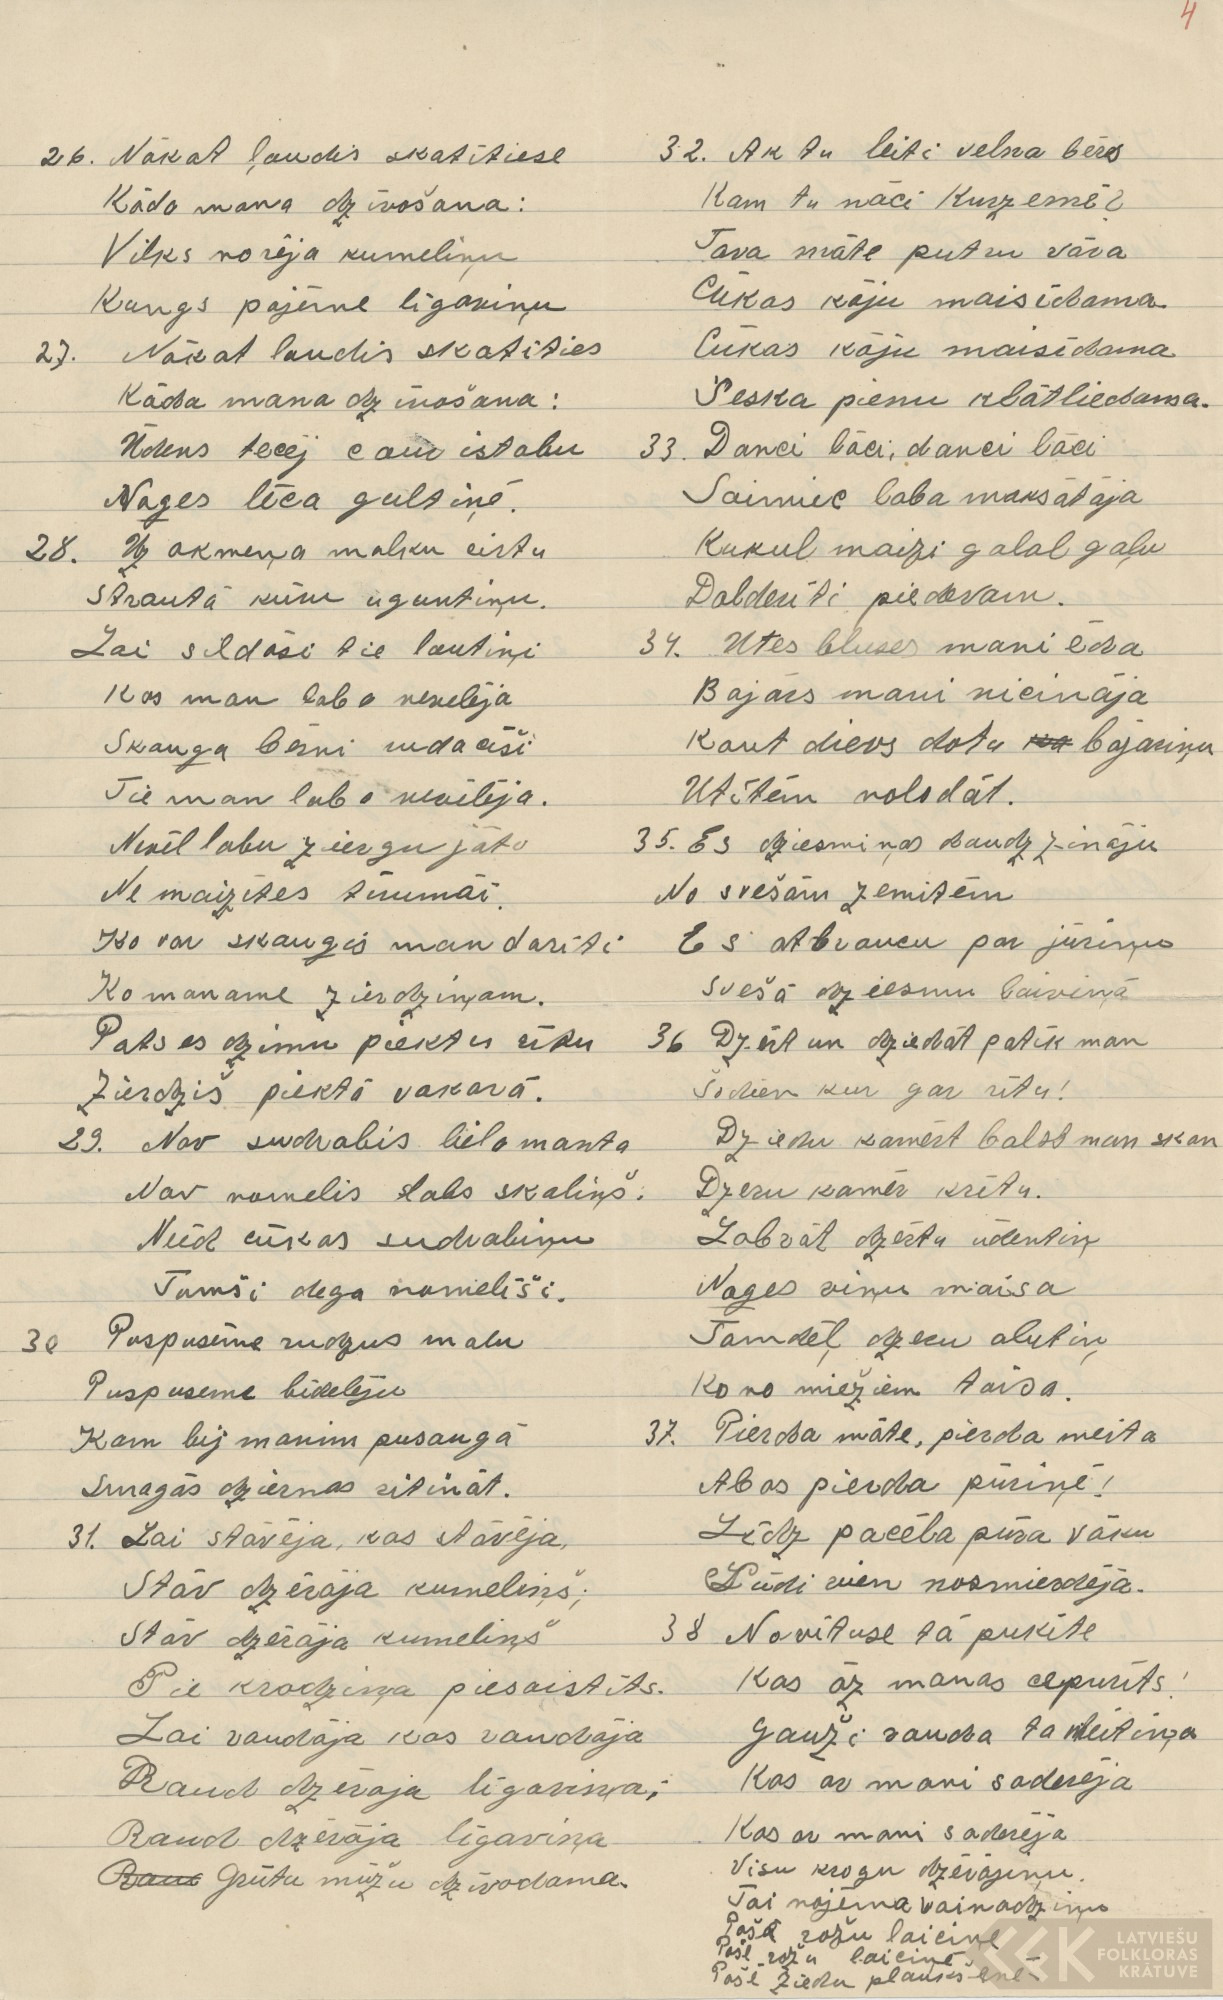 4
26. Nākat ļaudis skatītiese
Kādo mana dzīvošana:
Vilks norēja kumeliņu
Kungs paјēme līgaviņu
27. Nākat laudis skatīties
Kāda mana dzīvošana:
Ūdens tecēj caur istabu
Nages lēca gultiņē.
28. Uz akmeņa malku cirtu
Strautā kūru uguntiņu.
Lai sildāsi tie lautiņi
Kas man laba nevelēja
Skauga bērni sudacīši
Tie man laba nevēlēja.
Nevēl labu ziergu jāto
Ne maizītes tīrumāi.
Ko var skaugis man darīti
Ko maname zierdziņam.
Pats es dzimu piektu rītu
Zierdziš piektā vakarā.
29. Nav sudrabis liela manta
Nav namelis slabs skaliņš:
Neēd cūkas sudrabiņu
Tumši dega namelīši.
30 Puspusēme rudzus malu
Puspuseme bīdelēju
Kam bij manim pusaugā
Smagās dziernas ritināt.
31. Lai stāvēja, kas stāvēja,
Stāv dzērāja kumeliņš;
Stāv dzērāja kumeliņš
Pie krodziņa piesaistīts.
Lai raudāja kas raudāja
Raud dzērāja līgaviņa;
Raud dzērāja līgaviņa
Rau Grūtu mūžu dzīvodama.
32. Ak tu leiti velna bērs
Kam tu nāci Kurzemē?
Tava māte putru vāra
Cūkas kāju maisīdama
Cūkas kāju maisīdama
Šeska pienu klātliedama.
33. Danci lāci, danci lāci
Saimiec laba maksātāja
Kukul maizi galal gaļu
Dalderīti piedevam.
34. Utes bluses mani ēda
Bajārs mani nicināja
Kaut dievs dotu ka bajariņu
Utītēm nolodāt.
35. Es dziesmiņas daudz zināju
No svešām zemitēm
Es atbraucu par jūriņu
Svešā dziesmu laiviņā
36 Dzērt un dziedāt patīk man
Šodien kur gar rītu!
Dziedu kamērt balst man skan
Dzeru kamēr krītu.
Labrāt dzērtu ūdentiņ
Nages viņu maisa
Tamdēļ dzeru alutiņ
Ko no miežiem taisa.
37. Pierda māte, pierda meita
Abas pierda pūriņē!
Līdz pacēla pūra vāku
Sūdi vien nosmierdēja.
38 Novītuse tā pukīte
Kas āz manas cepurīts!
Gauži rauda ta meitiņa
Kas ar mani saderēja
Kas ar mani saderēja
Visu krogu dzērājiņu.
Tai noņēma vainadziņu
Pašē rožu laiciņē
Pašē rožu laiciņē
Pašē ziedu plaukšenē
LATVIEŠU
FOLKLORAS
KRĀTUVE